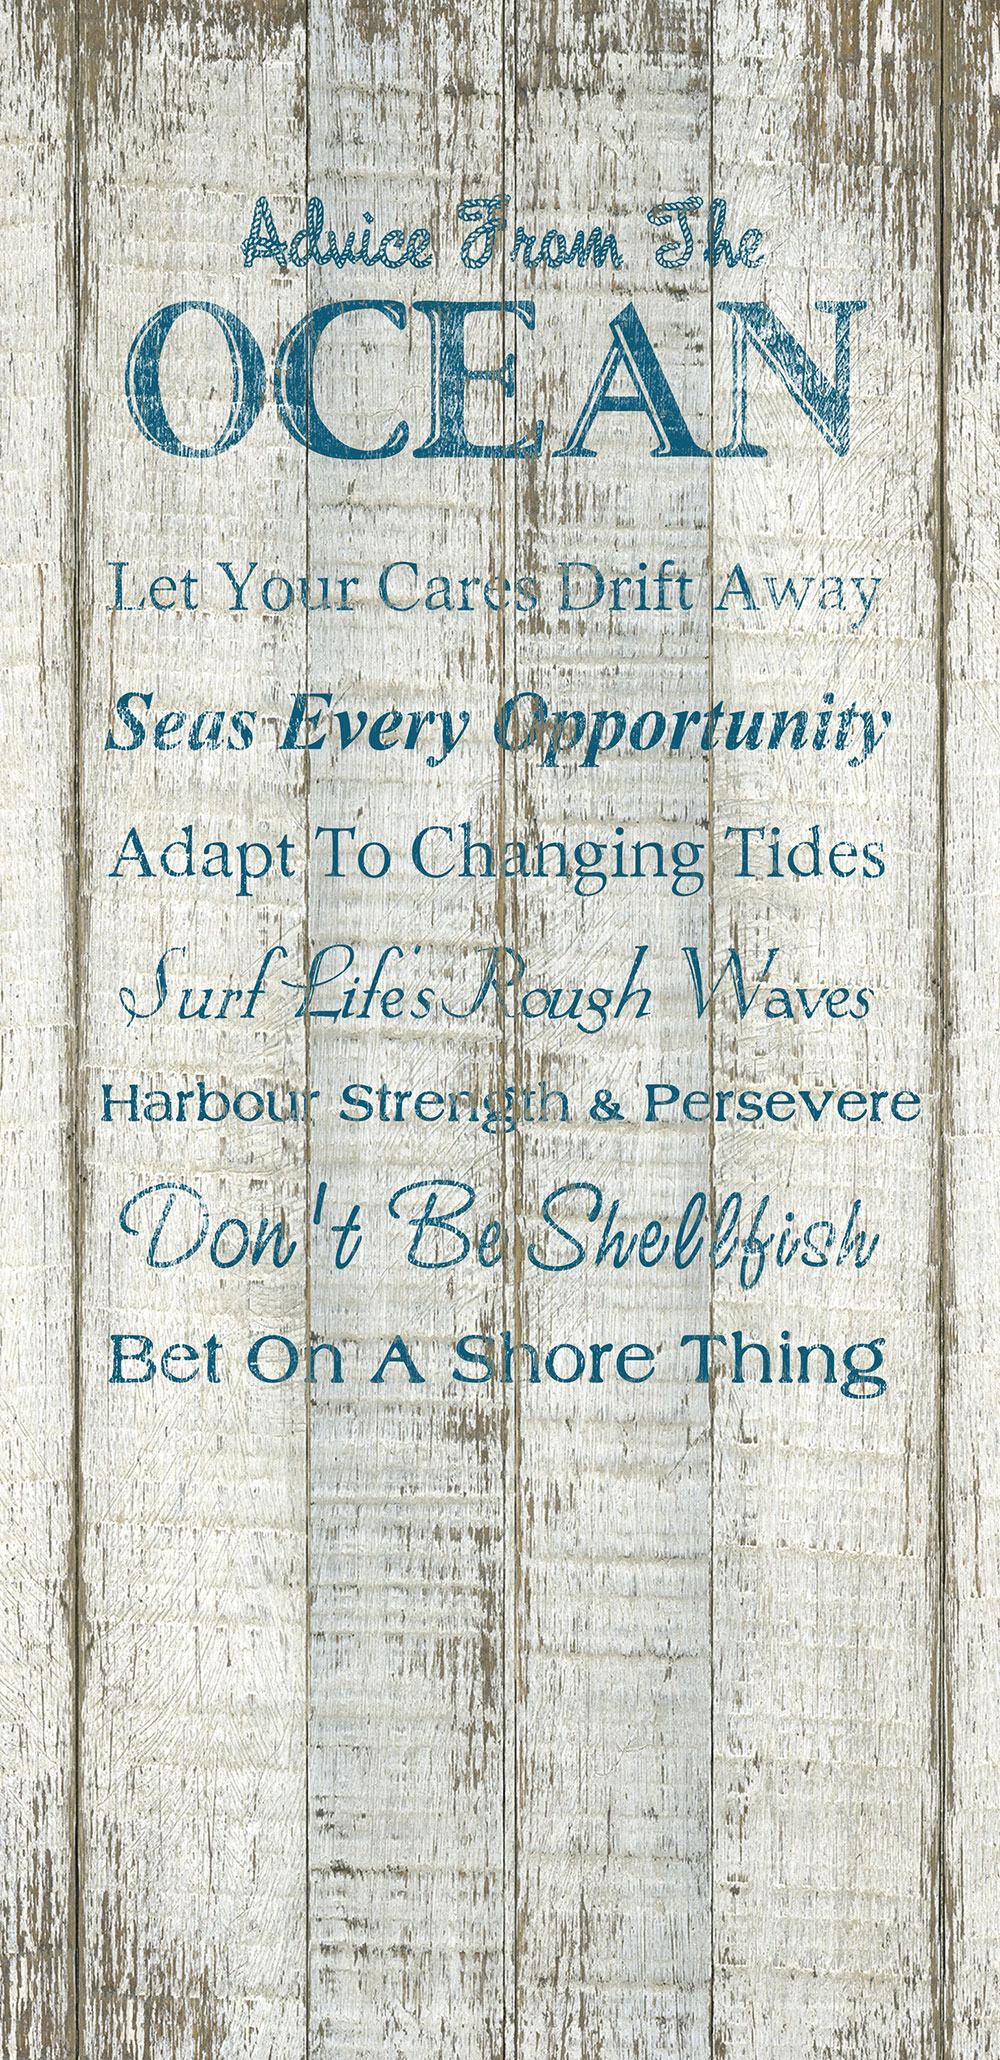 Advice From The
OCEAN
Let Your Cares Drift Away
Seas Every Opportunity
Adapt To Changing Tides
Surf Life's Rough Waves
Harbour Strength & Persevere
Don't Be Shellfish
Bet On A Shore Thing